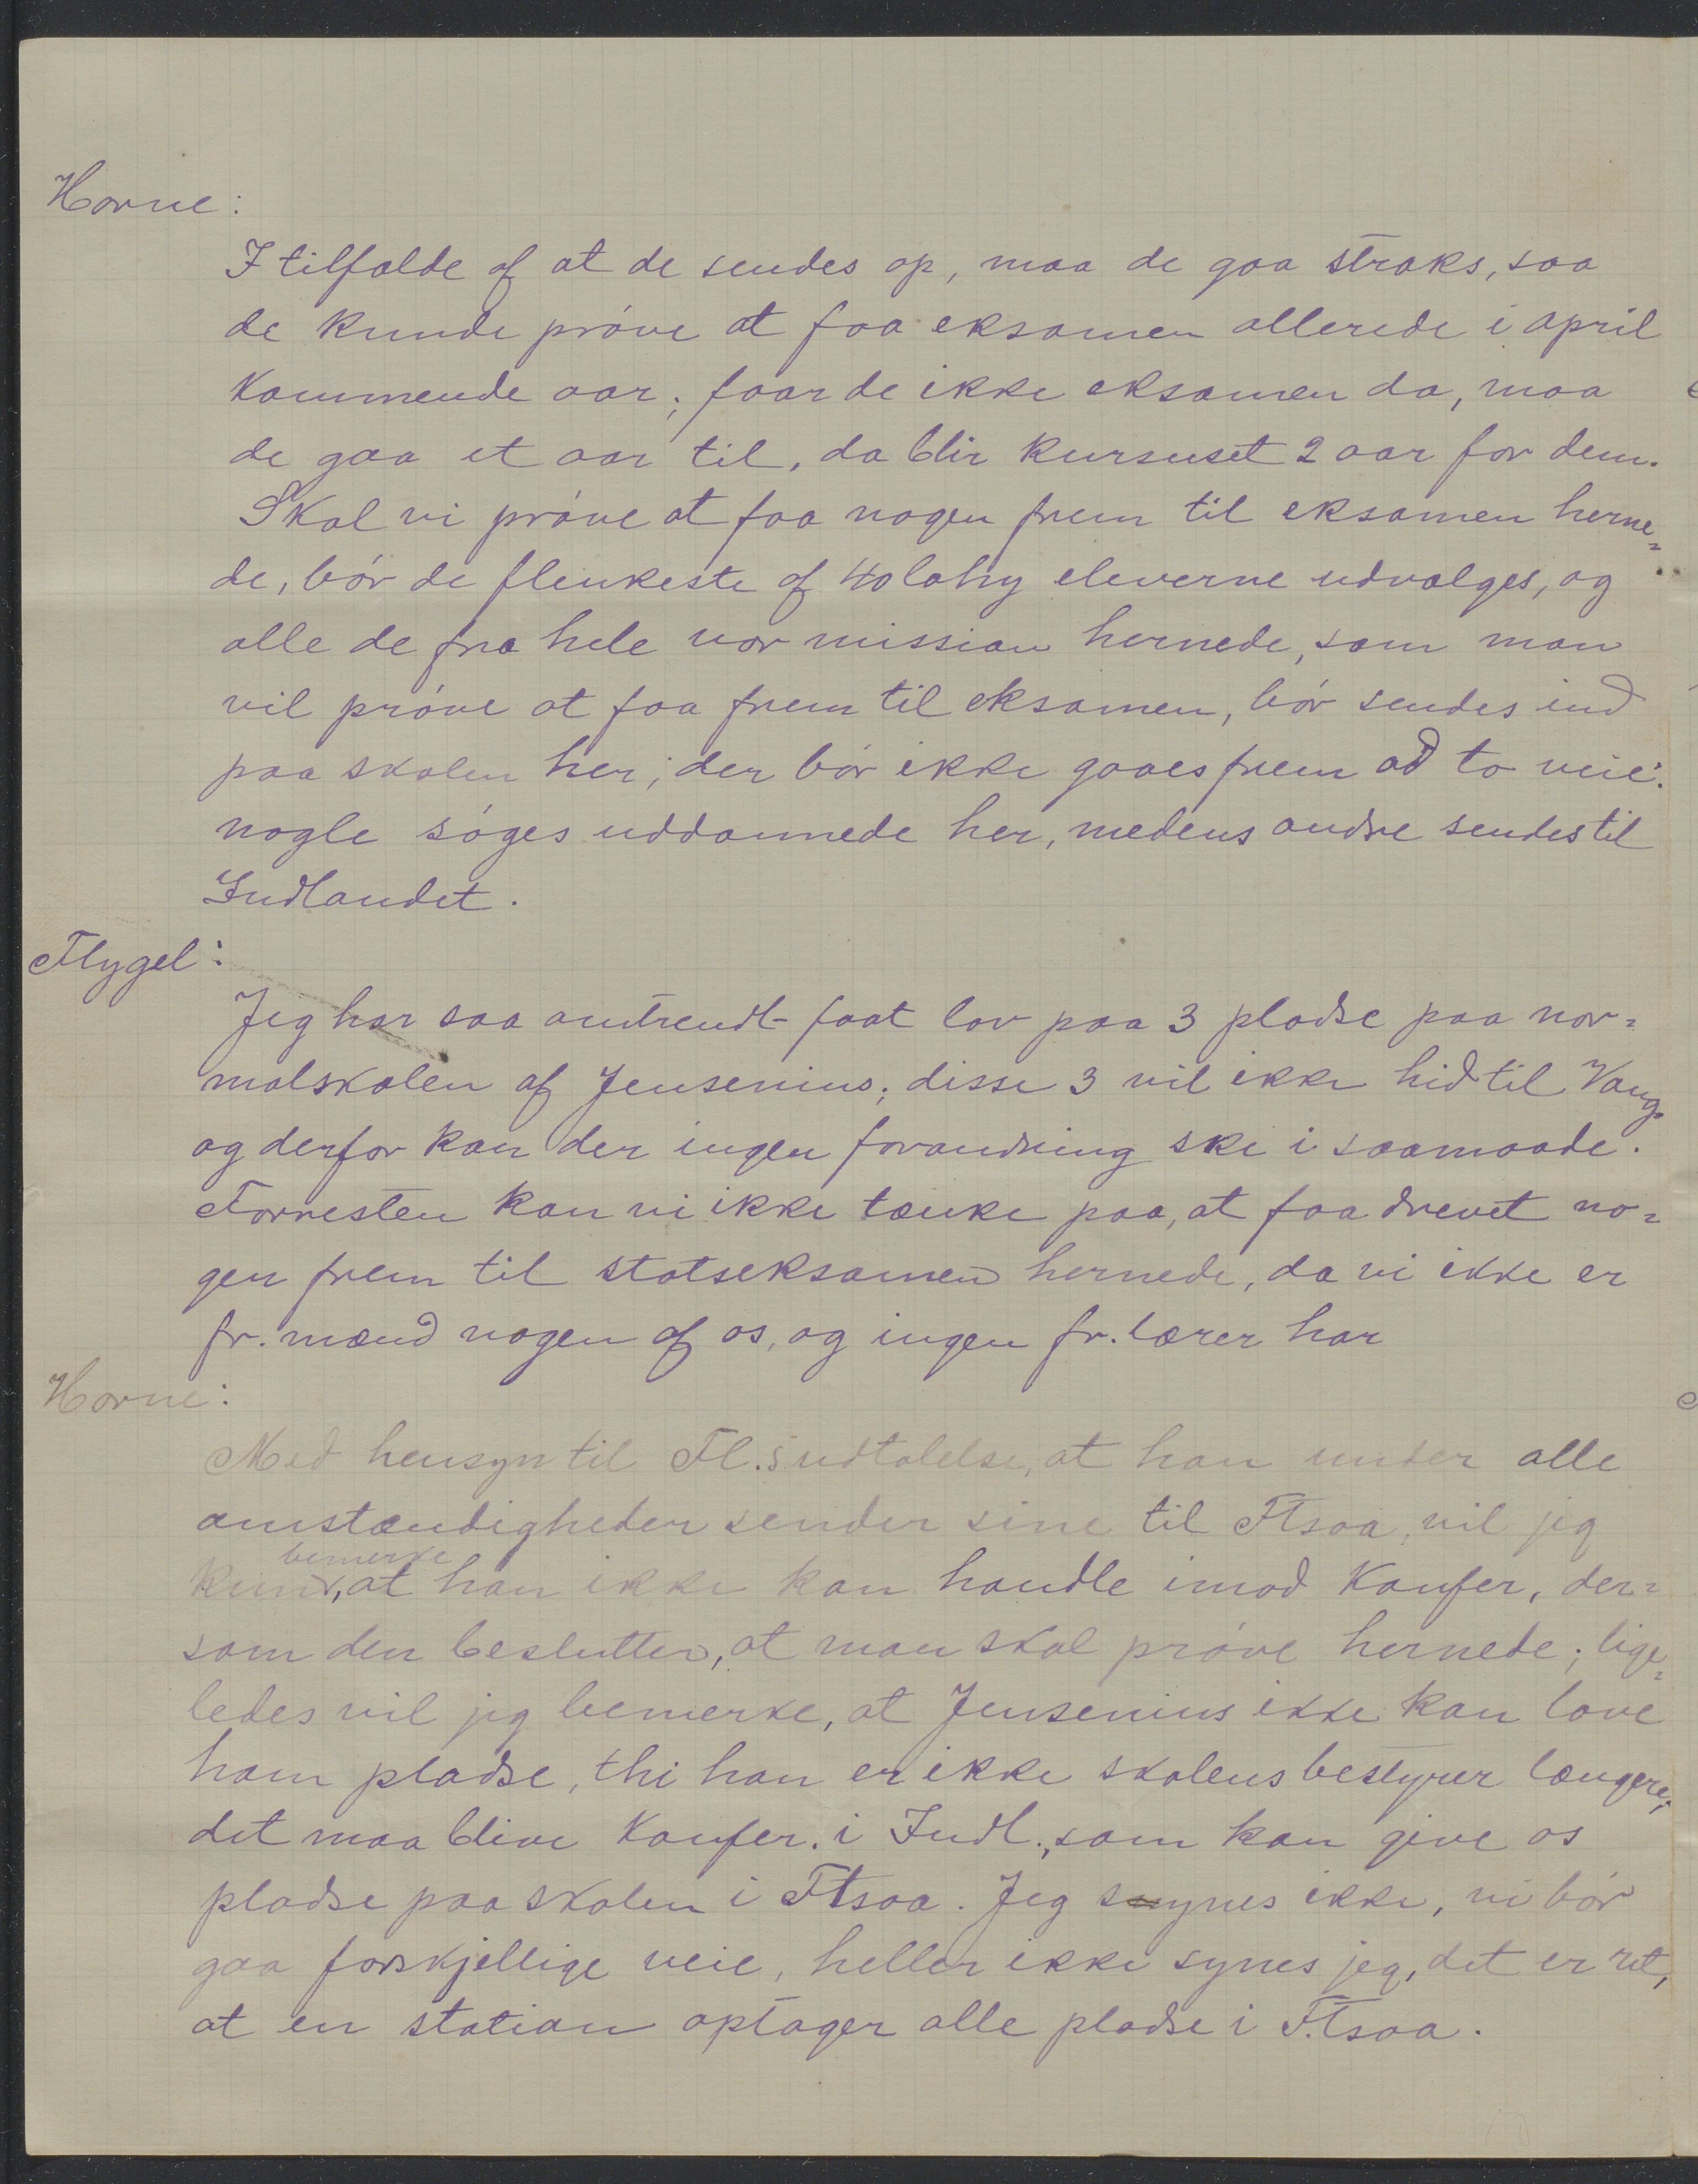 Horne:
I tilfælde af at de sendes op, maa de gaa straks, saa
de kunde prøve at faa eksamen allerede i april
kommende aar; faar de ikke eksamen da, maa
de gaa et aar til, da blir kursuset 2 aar for dem.
Skal vi prøve at faa nogen frem til eksamen herne=
de, bør de flinkeste af Holahy eleverne udvælges, og
alle de fra hele vor mission hernede, som man
vil prøve at faa frem til eksamen, bør sendes ind
paa skolen her; der bør ikke gaaes frem ad to veie:
nogle søges uddannede her, medens andre sendes til
Indlandet.
Flygel:
Jeg har saa omtrendt faat lov paa 3 pladse paa nor=
malskolen af Jensenius; disse 3 vil ikke hid til Vang.
og derfor kan der ingen forandring ske i saamaade.
Forresten kan vi ikke tænke paa, at faa drevet no=
gen frem til statseksamen hernede, da vi ikke er
fr. mænd nogen af os, og ingen fr. lærer har
Horne:
Med hensyn til Fl.s udtalelse, at han under alle
omstændigheder sender sine til Ftsoa, vil jeg
bemerke
kun, at han ikke kan handle imod Konfer, der=
som den beslutter, at man skal prøve hernede; lige=
ledes vil jeg bemerke, at Jensenius ikke kan love
ham pladse, thi han er ikke skolens bestyrer længere;
det maa blive Konfer. i Indl., som kan give os
pladse paa skolen i Ftsoa. Jeg synes ikke, vi bør
gaa forskjellige veie, heller ikke synes jeg, det er ret,
at en station optager alle pladse i F.tsoa.